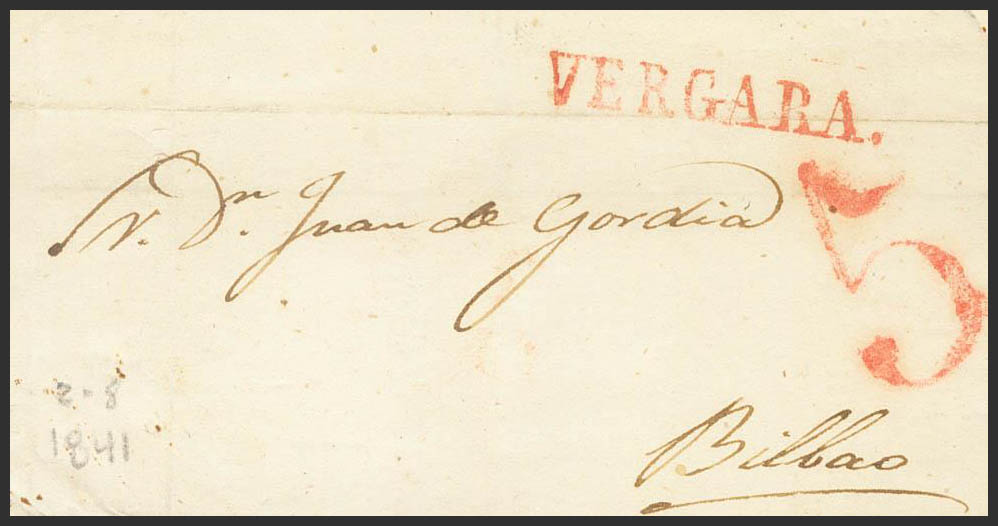 VERGARA.
5
Sr. Dn. Juan de Gordia
Bilbao
2-8
1841